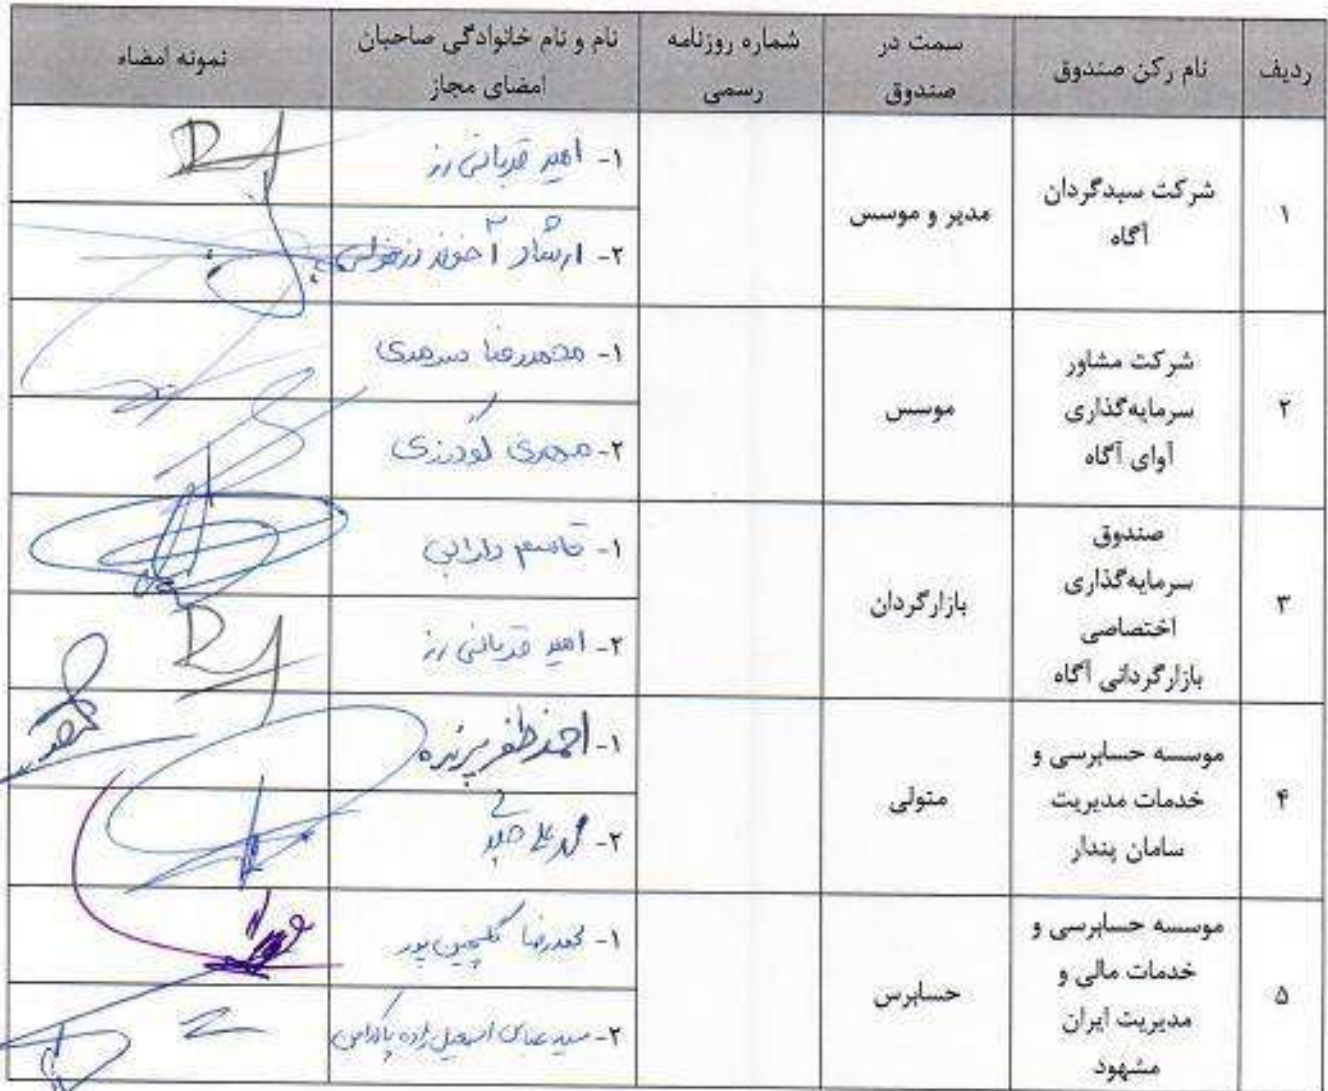 ردیف
نام رکن صندوق
سمت در
صندوق
شماره روزنامه
رسمی
نام و نام خانوادگی صاحبان
امضای مجاز
نمونه امضاء
۱
شرکت سبدگردان
آگاه
مدیر و موسس
۱- امیر قربانی رز
۲- ارشاد آخوند
۲
شرکت مشاور
سرمایه‌گذاری
آوای آگاه
موسس
۱- محمدرضا سرمدی
۲- مهدی گودرزی
۳
صندوق
سرمایه‌گذاری
اختصاصی
بازارگردانی آگاه
بازارگردان
۱- قاسم دارابی
۲- امیر قربانی رز
۴
موسسه حسابرسی و
خدمات مدیریت
سامان پندار
متولی
۱- احمد ظفر پرنده
۲- محمد علی
۵
موسسه حسابرسی و
خدمات مالی و
مدیریت ایران
مشهود
حسابرس
۱- محمدرضا گلچین پور
۲- سید عباس اسمعیل زاده پاکدامن